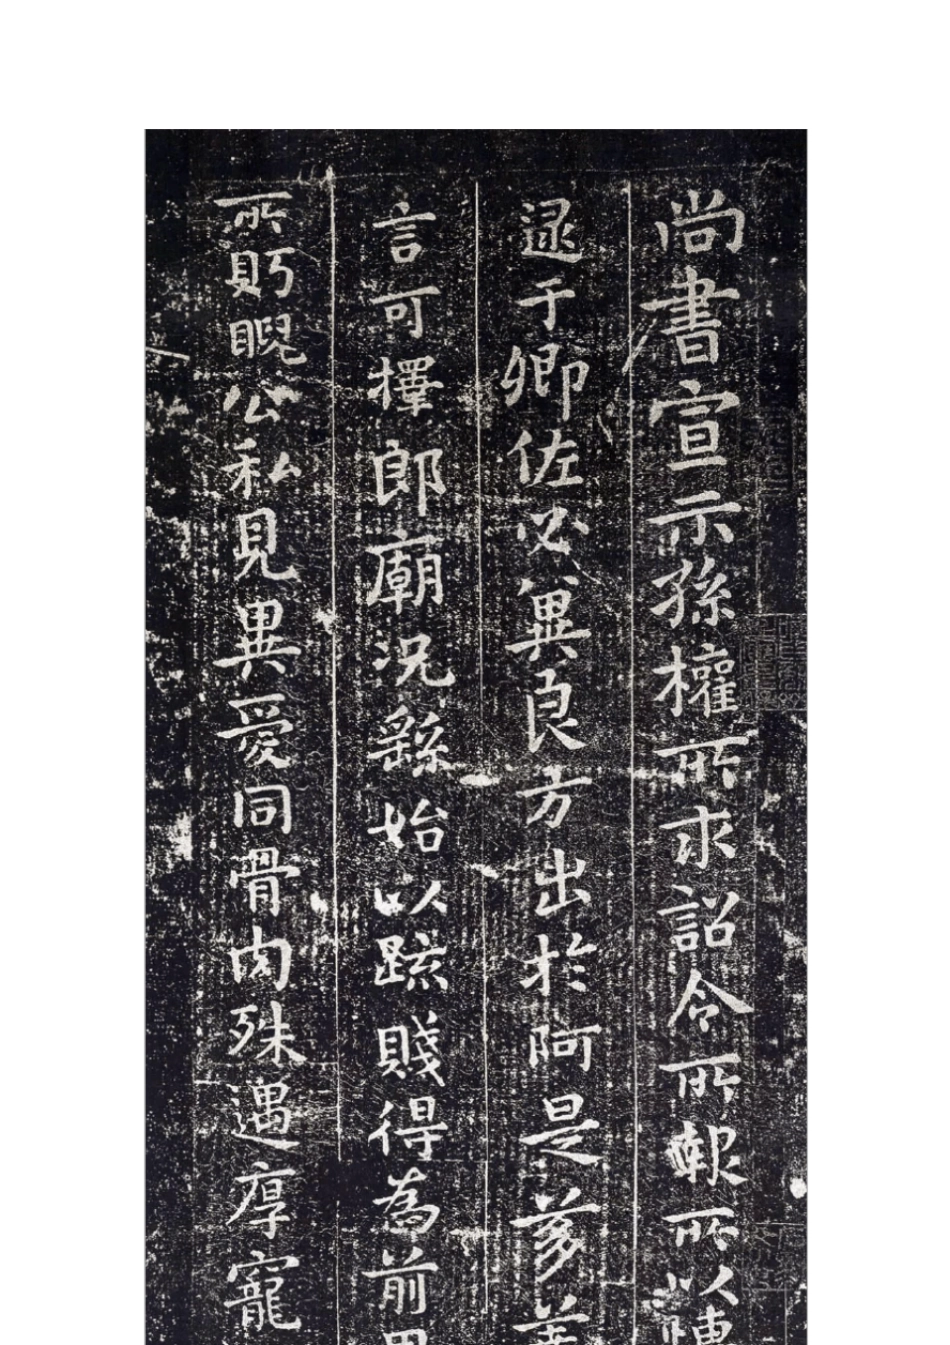 尚書宣示孫權所求詔令所報所以博
逮于卿佐必冀良方出於阿是芻蕘
言可擇郎廟況繇始以疏賤得為前恩
所眄睨公私見異愛同骨肉殊遇厚寵